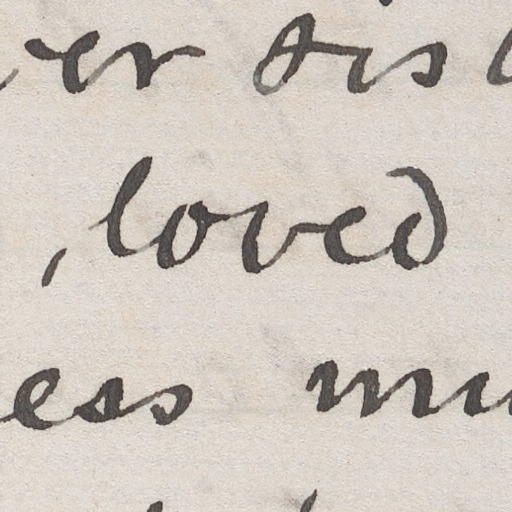 er dis
, loved
ess mu